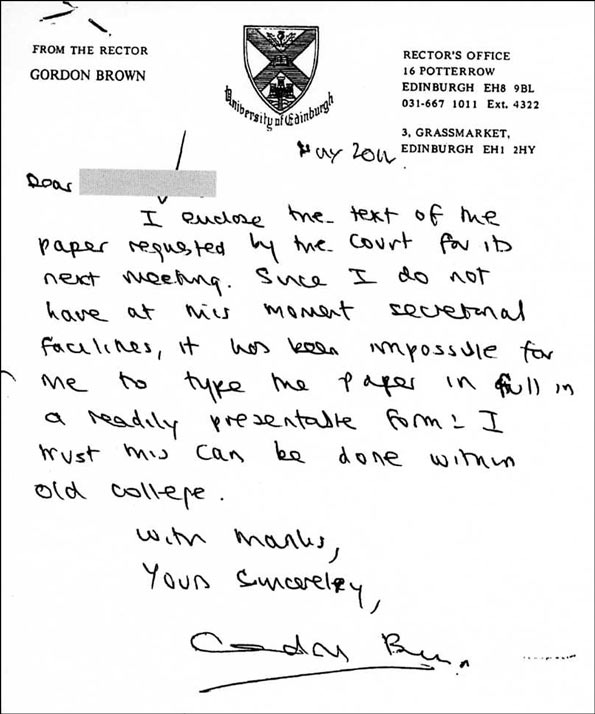 FROM THE RECTOR
GORDON BROWN
University of Edinburgh
RECTOR'S OFFICE
16 POTTERROW
EDINBURGH EH8 9BL
031-667 1011 Ext. 4322
3, GRASSMARKET,
EDINBURGH EH1 2HY
May
Dear
I enclose the text of the
paper requested by the Court for its
next meeting. Since I do not
have at this moment secretarial
facilities, it has been impossible for
me to type the paper in full in
a readily presentable form: I
trust this can be done within
old college.
With thanks,
Yours Sincerely,
Gordon Brown